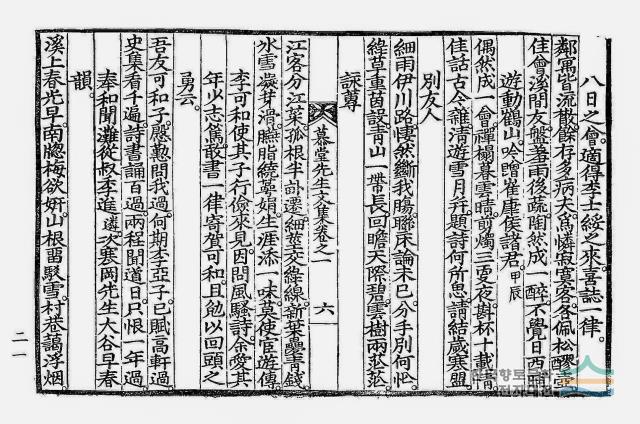 八日之會適得李士綏之來喜誌一律
鄰寓皆流散餘存多病夫爲憐寂寞客各佩松醪壺
佳會溪間友盤 雨後蔬陶然成一醉不覺日西晡
遊動鶴山吟贈崔康侯諸君 甲辰
偶然成一會禪榻暮雲晴剪燭三更夜斟杯十載情
佳話古今雜淸遊雪月幷題詩何所思請結歲寒盟
別友人
細雨伊川路悽然斷我腸聯床論未已分手別何忙
綠草重茵設靑山一帶長回瞻天際碧雲樹兩茫茫
詠蓴
慕堂先生文集卷之一 六
江客分江菜孤根半卧遷細莖交綠線新葉疊靑錢
水雪凝芽滑臙脂繞蕚娟生涯添一味莫使宦遊傳
李可和使其子行儉來見因問風騷詩余愛其
年少志篤敬書一律寄賀可和且勉以回頭之
勇云
吾友可和子慇懃問我過何期李亞子已賦高軒過
史集看千遍詩書誦百過兩程聞道日只恨一年過
奉和聞灘從叔李進 次寒岡先生大谷早春
韻
溪上春光早南牕梅欲姸山根留駁雪村巷藹浮烟
二一
한국향토문화
전자대전